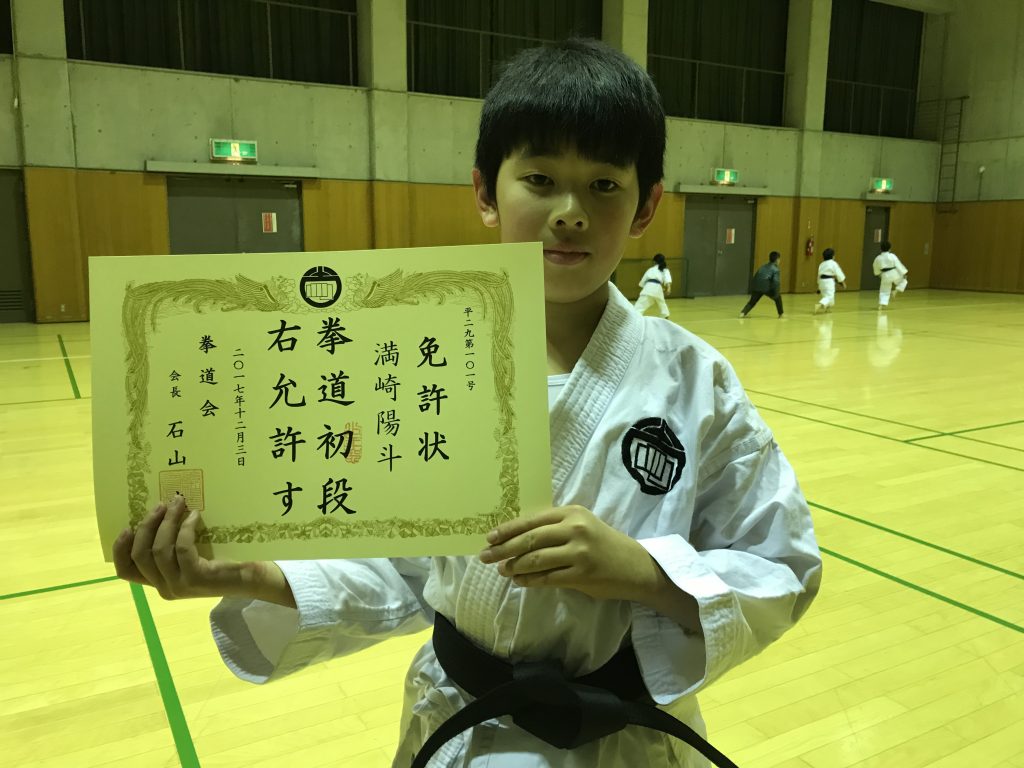 平二九第一〇一号
免許状
満崎陽斗
拳道初段
右允許す
二〇一七年十二月三日
拳道会
会長 石山